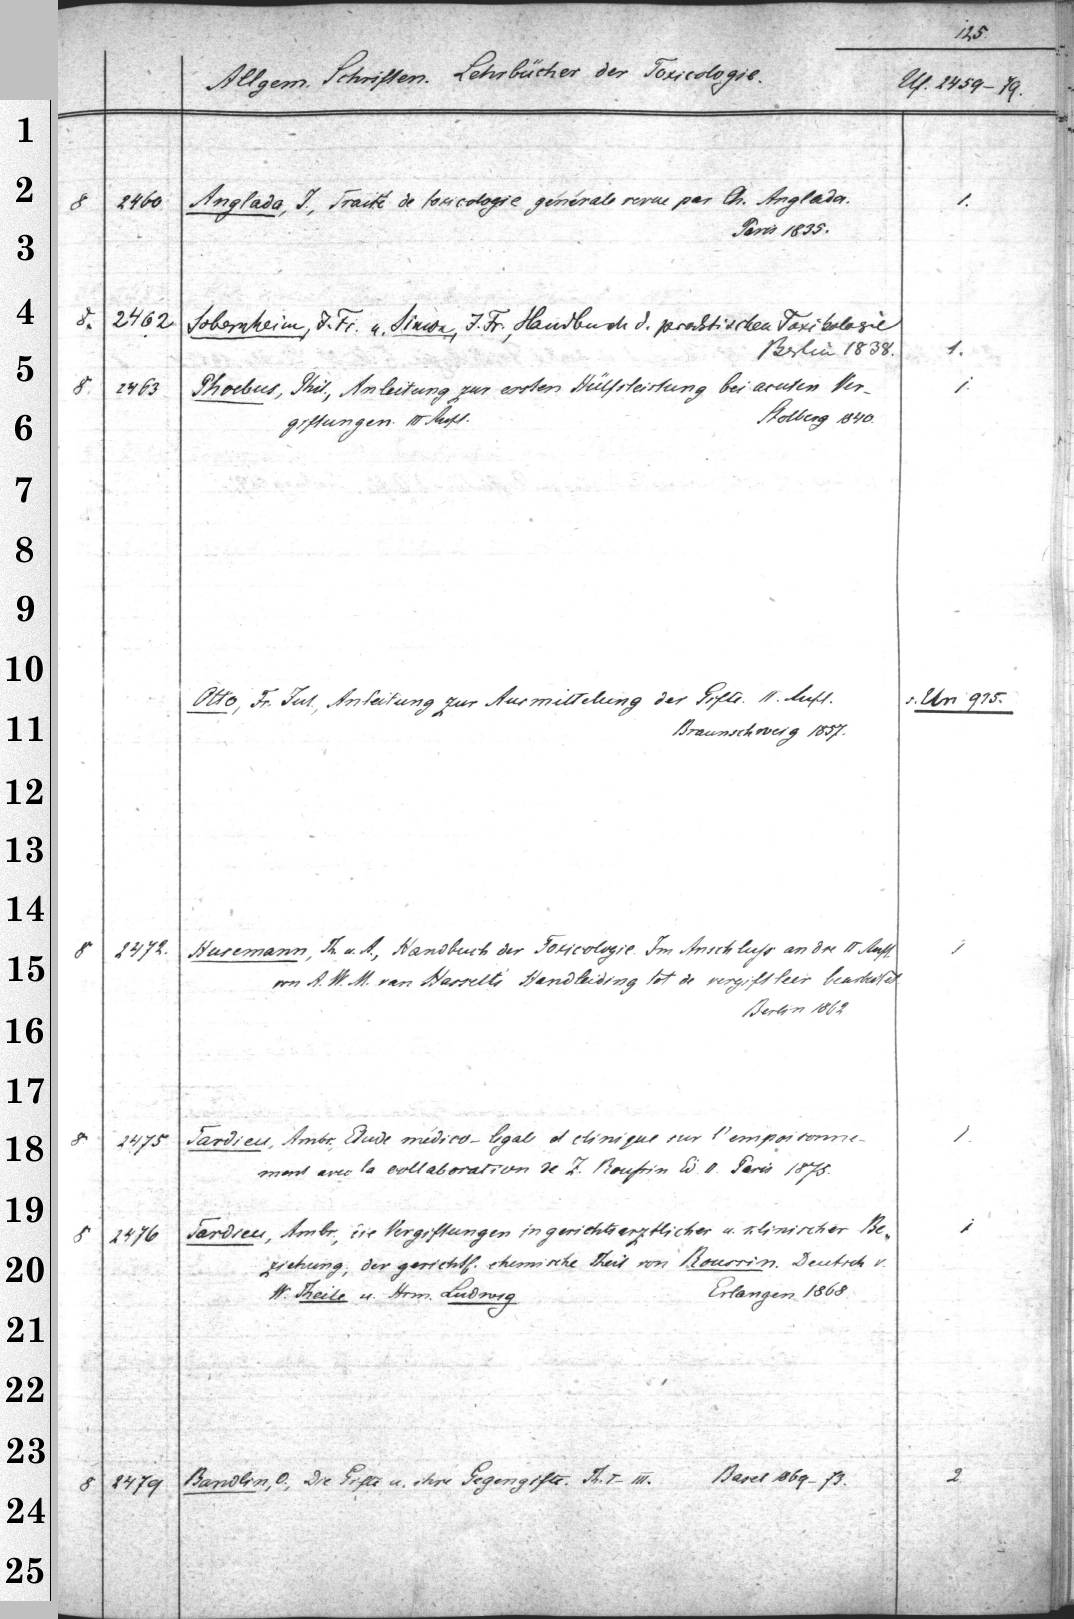 125.
Allgem. Schriften. Lehrbücher der Toxicologie. Uf. 2459-79.
1
2
8 2460 Anglada, J., Traité de toxicologie générale revue par Ch. Anglada. 1.
Paris 1835.
3
4
8. 2462 Sobernheim, J. Fr. u. Simon, J. Fr., Handbuch d. praktischen Toxikologie
Berlin 1838. 1.
5
8 2463 Phoebus, Phil., Anleitung zur ersten Hülfsleistung bei acuten Ver- 1.
giftungen. III Aufl. Stolberg 1840.
6
7
8
9
10
Otto, Fr. Jul., Anleitung zur Ausmittelung der Gifte. II. Aufl. s. Un 975.
Braunschweig 1857.
11
12
13
14
8 2472. Husemann, Th. u. A., Handbuch der Toxicologie. Im Anschluss an die II Aufl. 1
von A. W. M. van Hasselt's Handleiding tot de vergiftleer bearbeitet
15
Berlin 1862
16
17
18
8 2475 Tardieu, Ambr., Etude médico-légale et clinique sur l'empoisonne- 1.
ment avec la collaboration de Z. Roussin Ed. II. Paris 1875.
19
8 2476 Tardieu, Ambr., die Vergiftungen in gerichtsärztlicher u. klinischer Be- 1
ziehung, der gerichtl. chemische Theil von Roussin. Deutsch v.
20
W. Theile u. Hrm. Ludwig Erlangen 1868
21
22
23
8 2479 Bandlin, O., Die Gifte u. ihre Gegengifte. Th. I-III. Basel 1869-73. 2
24
25